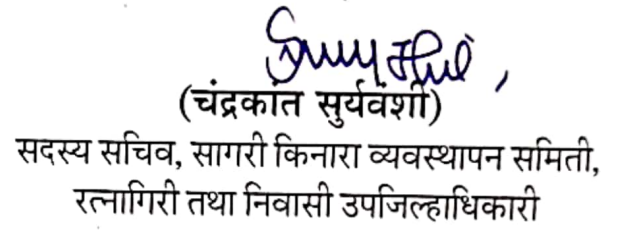 (चंद्रकांत सुर्यवंशी)
सदस्य सचिव, सागरी किनारा व्यवस्थापन समिती,
रत्नागिरी तथा निवासी उपजिल्हाधिकारी